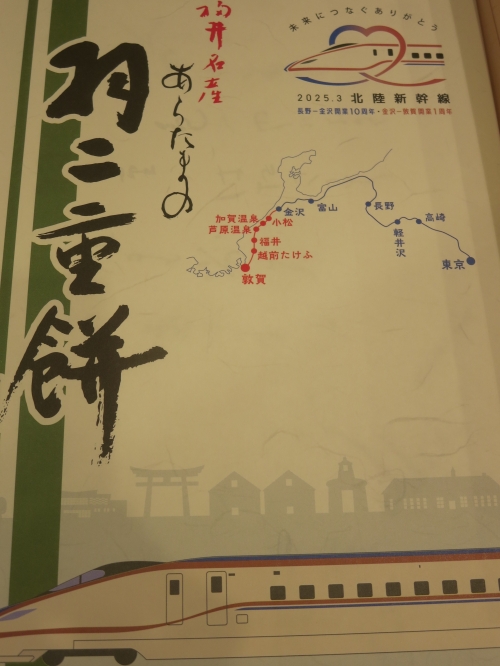 福井名産
あらたまの
羽二重餅
未来につなぐありがとう
2025.3 北陸新幹線
長野-金沢開業10周年・金沢-敦賀開業1周年
加賀温泉
芦原温泉
小松
金沢
富山
長野
軽井沢
高崎
東京
福井
越前たけふ
敦賀